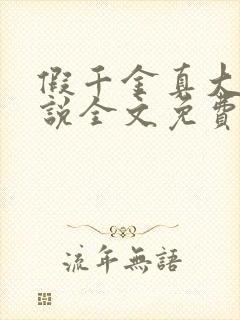 假千金真大
説全文免費
流年無語